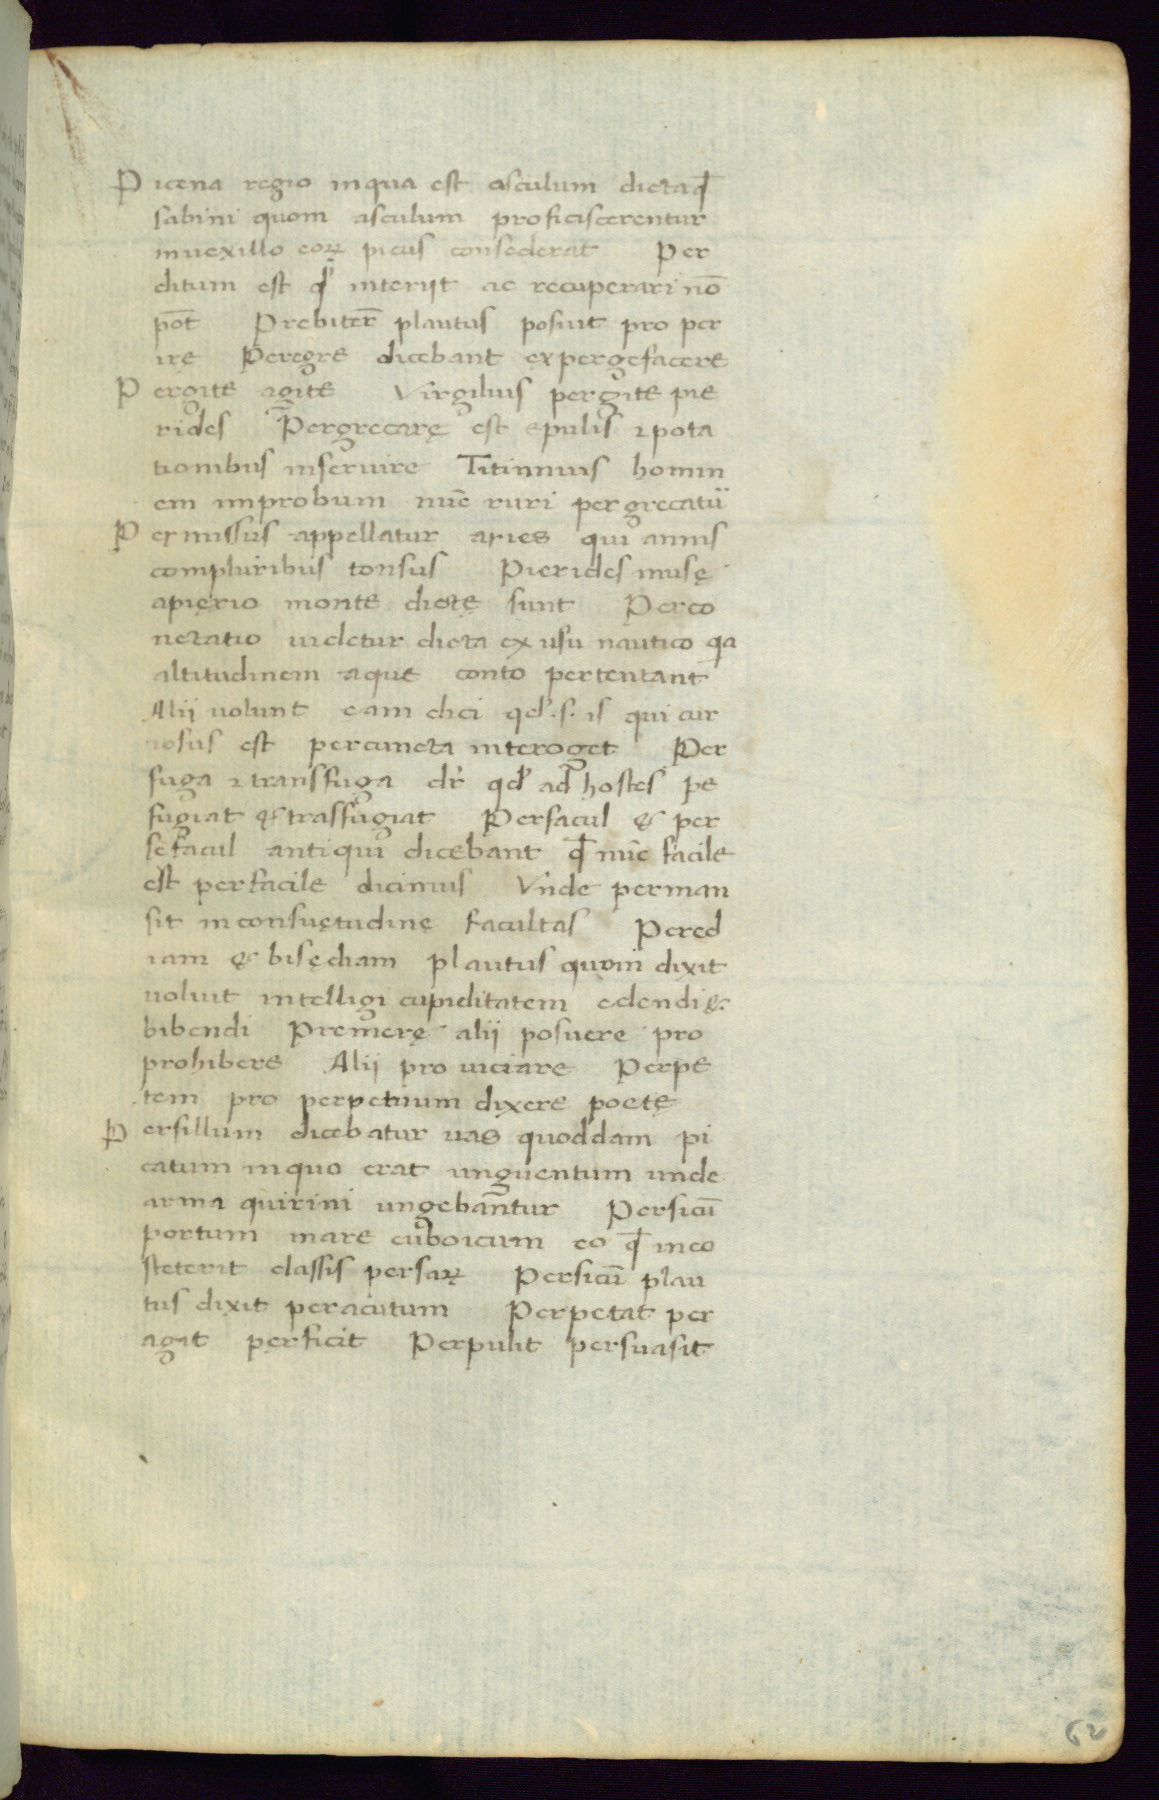 Picena regio inqua est asculum dictaqđ
sabini quom asculum proficiscerentur
inuexillo eoꝝ picus consederat Per
ditum est qđ interijt ac recuperari nō
pōt Prebiter̄ plautus posuit pro per
irę Peregre dicebant expergefacere
Pergite agite Virgilius pergite pie
rides Pergrecarę est epulis ⁊pota
tionibus inseruire Titinnius homin
em improbum nūc ruri pergrecatū
Permissus appellatur aries qui annis
compluribus tonsus Pierides musę
apierio monte dictę sunt Perco
nctatio uidetur dicta ex usu nautico qa
altitudinem aque conto pertentant
Alij uolunt eam dici qđ .s. is qui cur
iosus est percuncta interoget Per
fuga ⁊transfuga dr̄ qđ ad hostes pe
fugiat &trasfugiat Persacul & per
sefacul antiqui dicebant qđ nūc facile
est perfacile dicimus Vnde perman
sit inconsuętudinę facultas Pered
iam & bisędiam plautus quom dixit
uoluit intelligi cupiditatem edendi &
bibendi Premerę alij posuere pro
prohibere Alij pro uiciare Perpe
tem pro perpetuum dixere poetę
Persillum dicebatur uas quoddam pi
catum inquo erat unguentum unde
arma quirini ungebantur Persicū
portum mare euboicum eo qđ ineo
steterit classis persaꝝ Persicū plau
tus dixit peracutum Perpetat per
agat perficit Perpulit persuasit
62